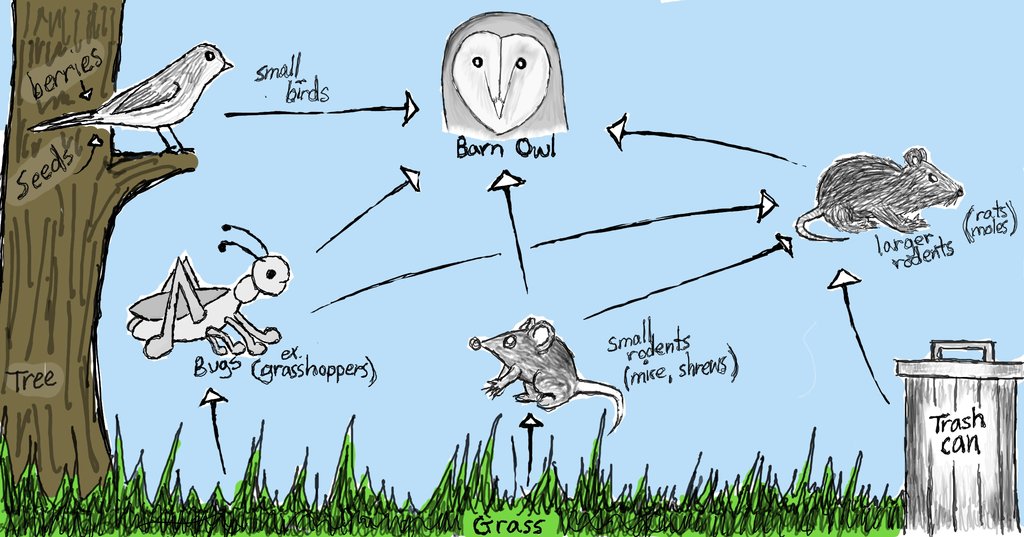 berries
Seeds
small
birds
Barn Owl
larger
rodents
(rats
moles)
Bugs
ex.
(grasshoppers)
Small
rodents
(mice, shrews)
Tree
Trash
can
Grass